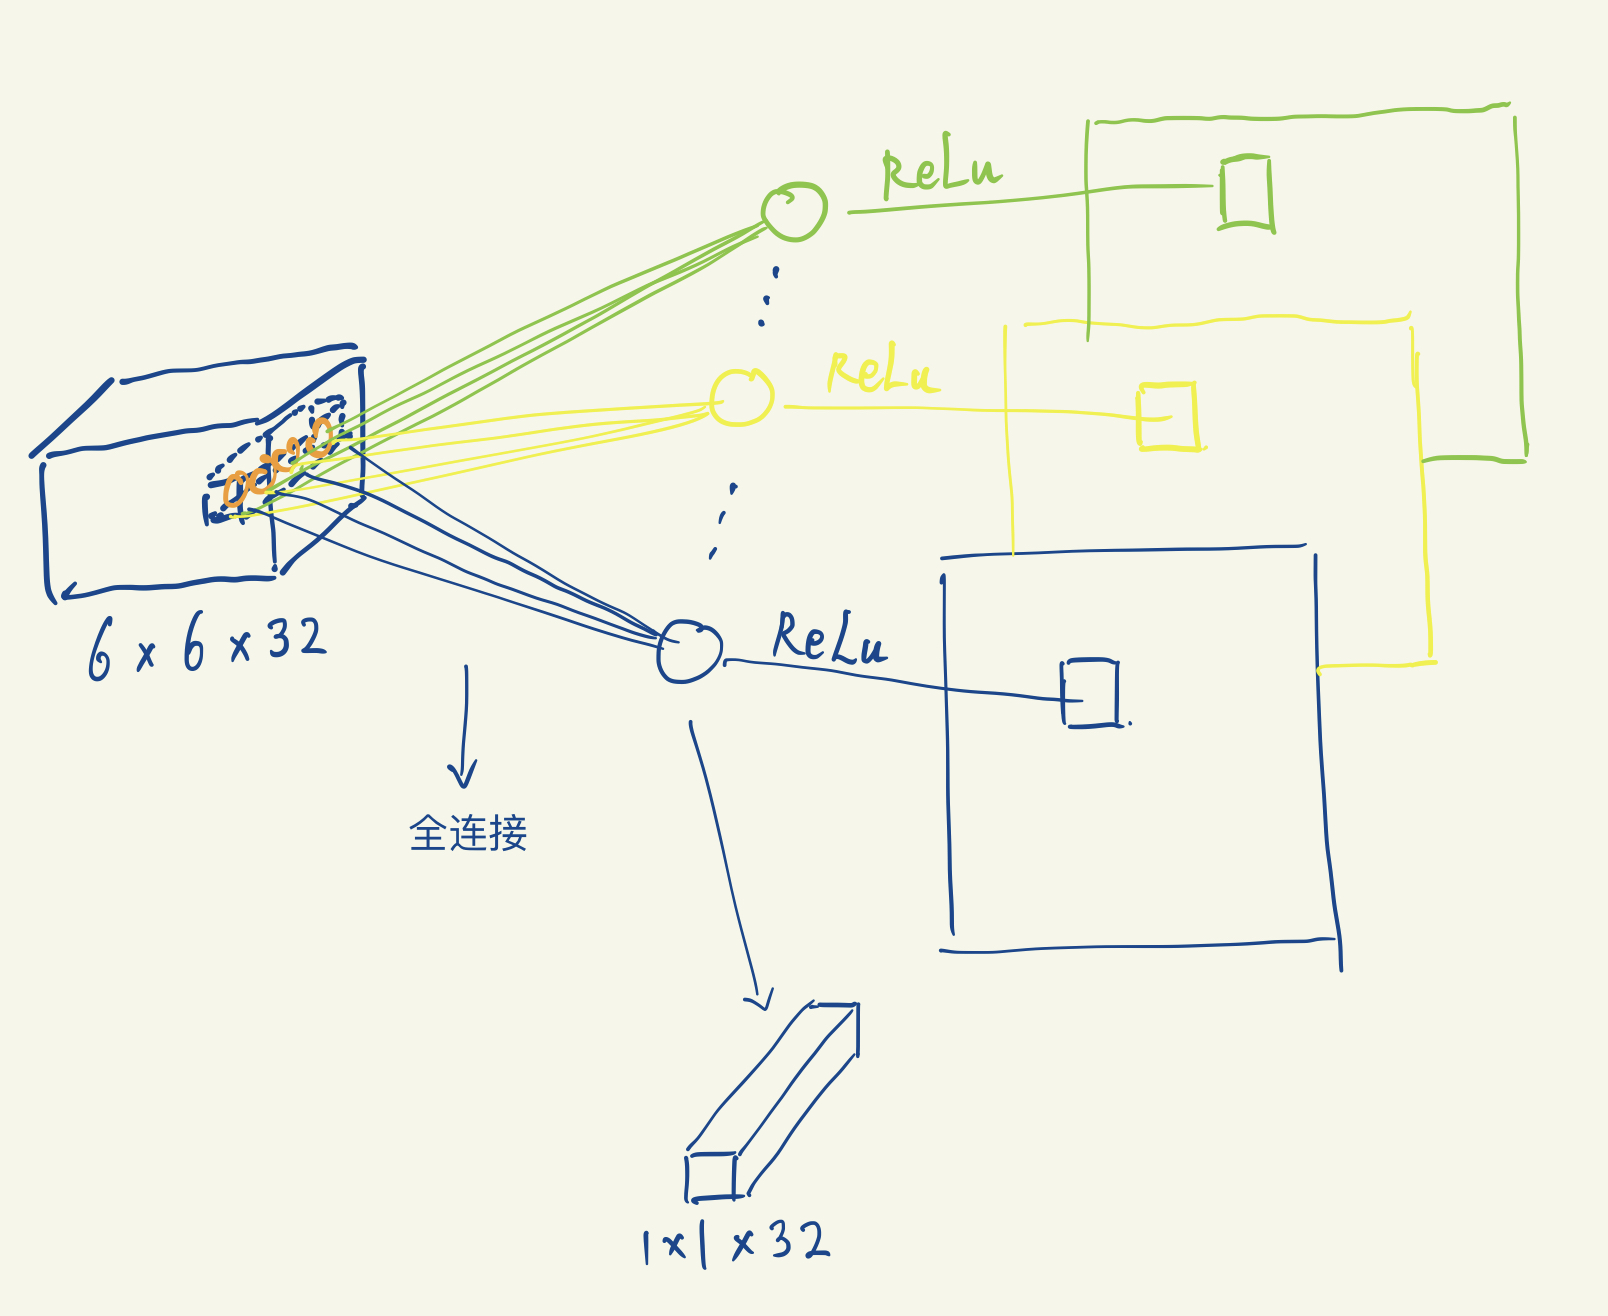 ReLu
ReLu
ReLu
6 x 6 x 32
全连接
1 x 1 x 32